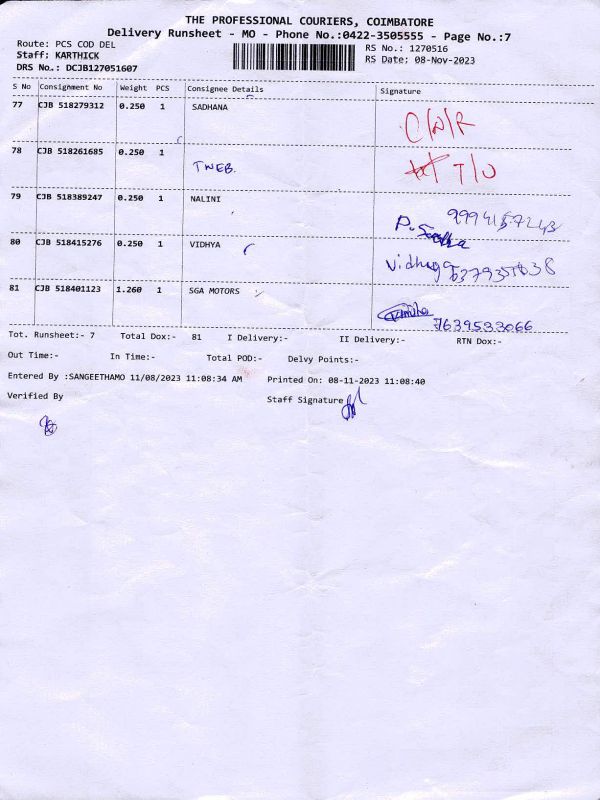 THE PROFESSIONAL COURIERS, COIMBATORE
Delivery Runsheet - MO - Phone No.:0422-3505555 - Page No.:7
Route: PCS COD DEL RS No.: 1270516
Staff: KARTHICK RS Date: 08-Nov-2023
DRS No.: DCJB127051607
S No Consignment No Weight PCS Consignee Details Signature
77 CJB 518279312 0.250 1 SADHANA C/N/R
78 CJB 518261685 0.250 1 TWEB. T/O
79 CJB 518389247 0.250 1 NALINI P.
80 CJB 518415276 0.250 1 VIDHYA Vidhya
81 CJB 518401123 1.260 1 SGA MOTORS 7639533066
Tot. Runsheet:- 7 Total Dox:- 81 I Delivery:- II Delivery:- RTN Dox:-
Out Time:- In Time:- Total POD:- Delvy Points:-
Entered By :SANGEETHAMO 11/08/2023 11:08:34 AM Printed On: 08-11-2023 11:08:40
Verified By Staff Signature